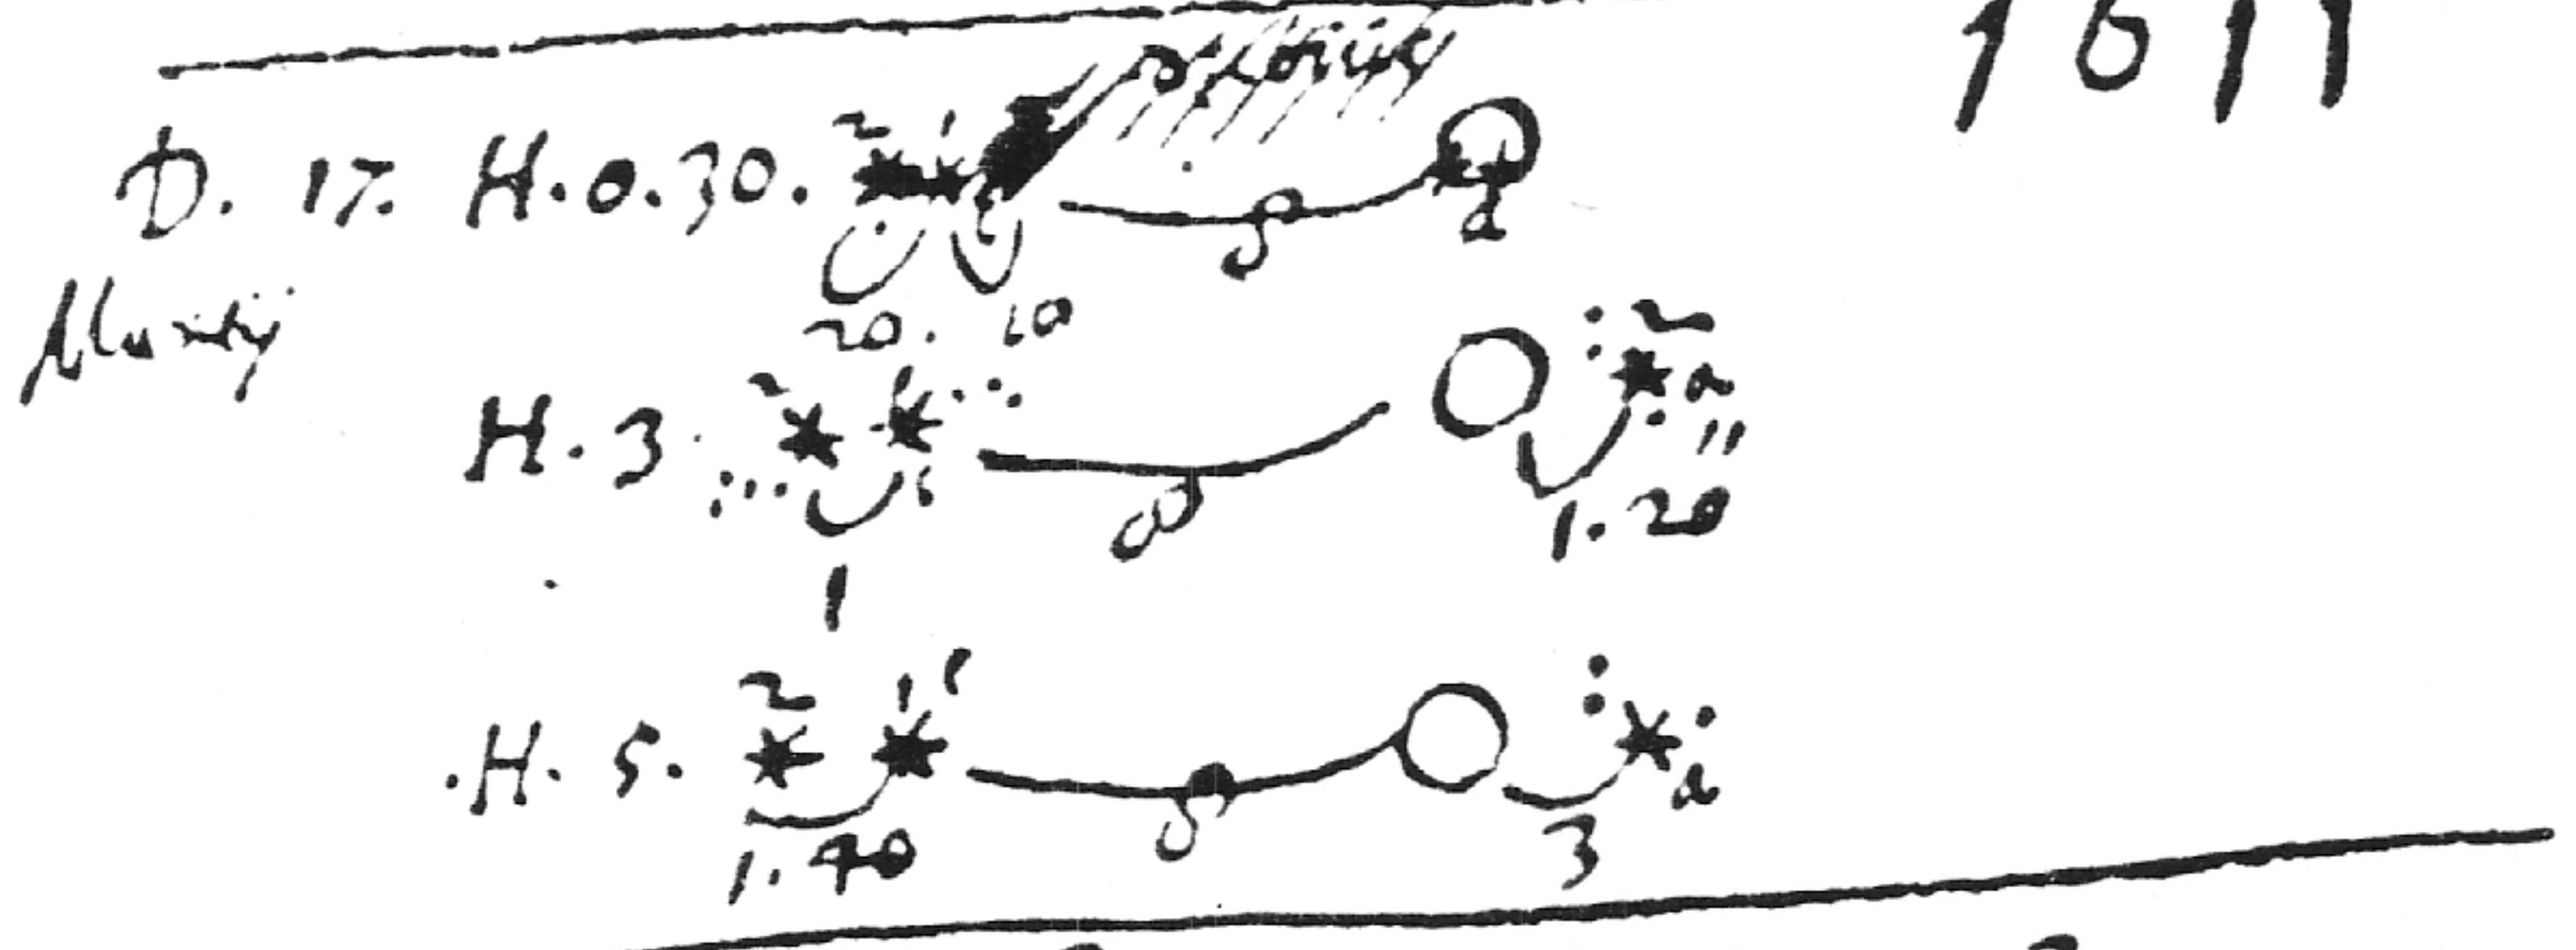 1611
D. 17. H. 0. 30. 2 1 8 a
Martij
20. 10
H. 3. 2 1 8 2 a
1 1. 20
H. 5. 2 1 8 a
1. 40 3